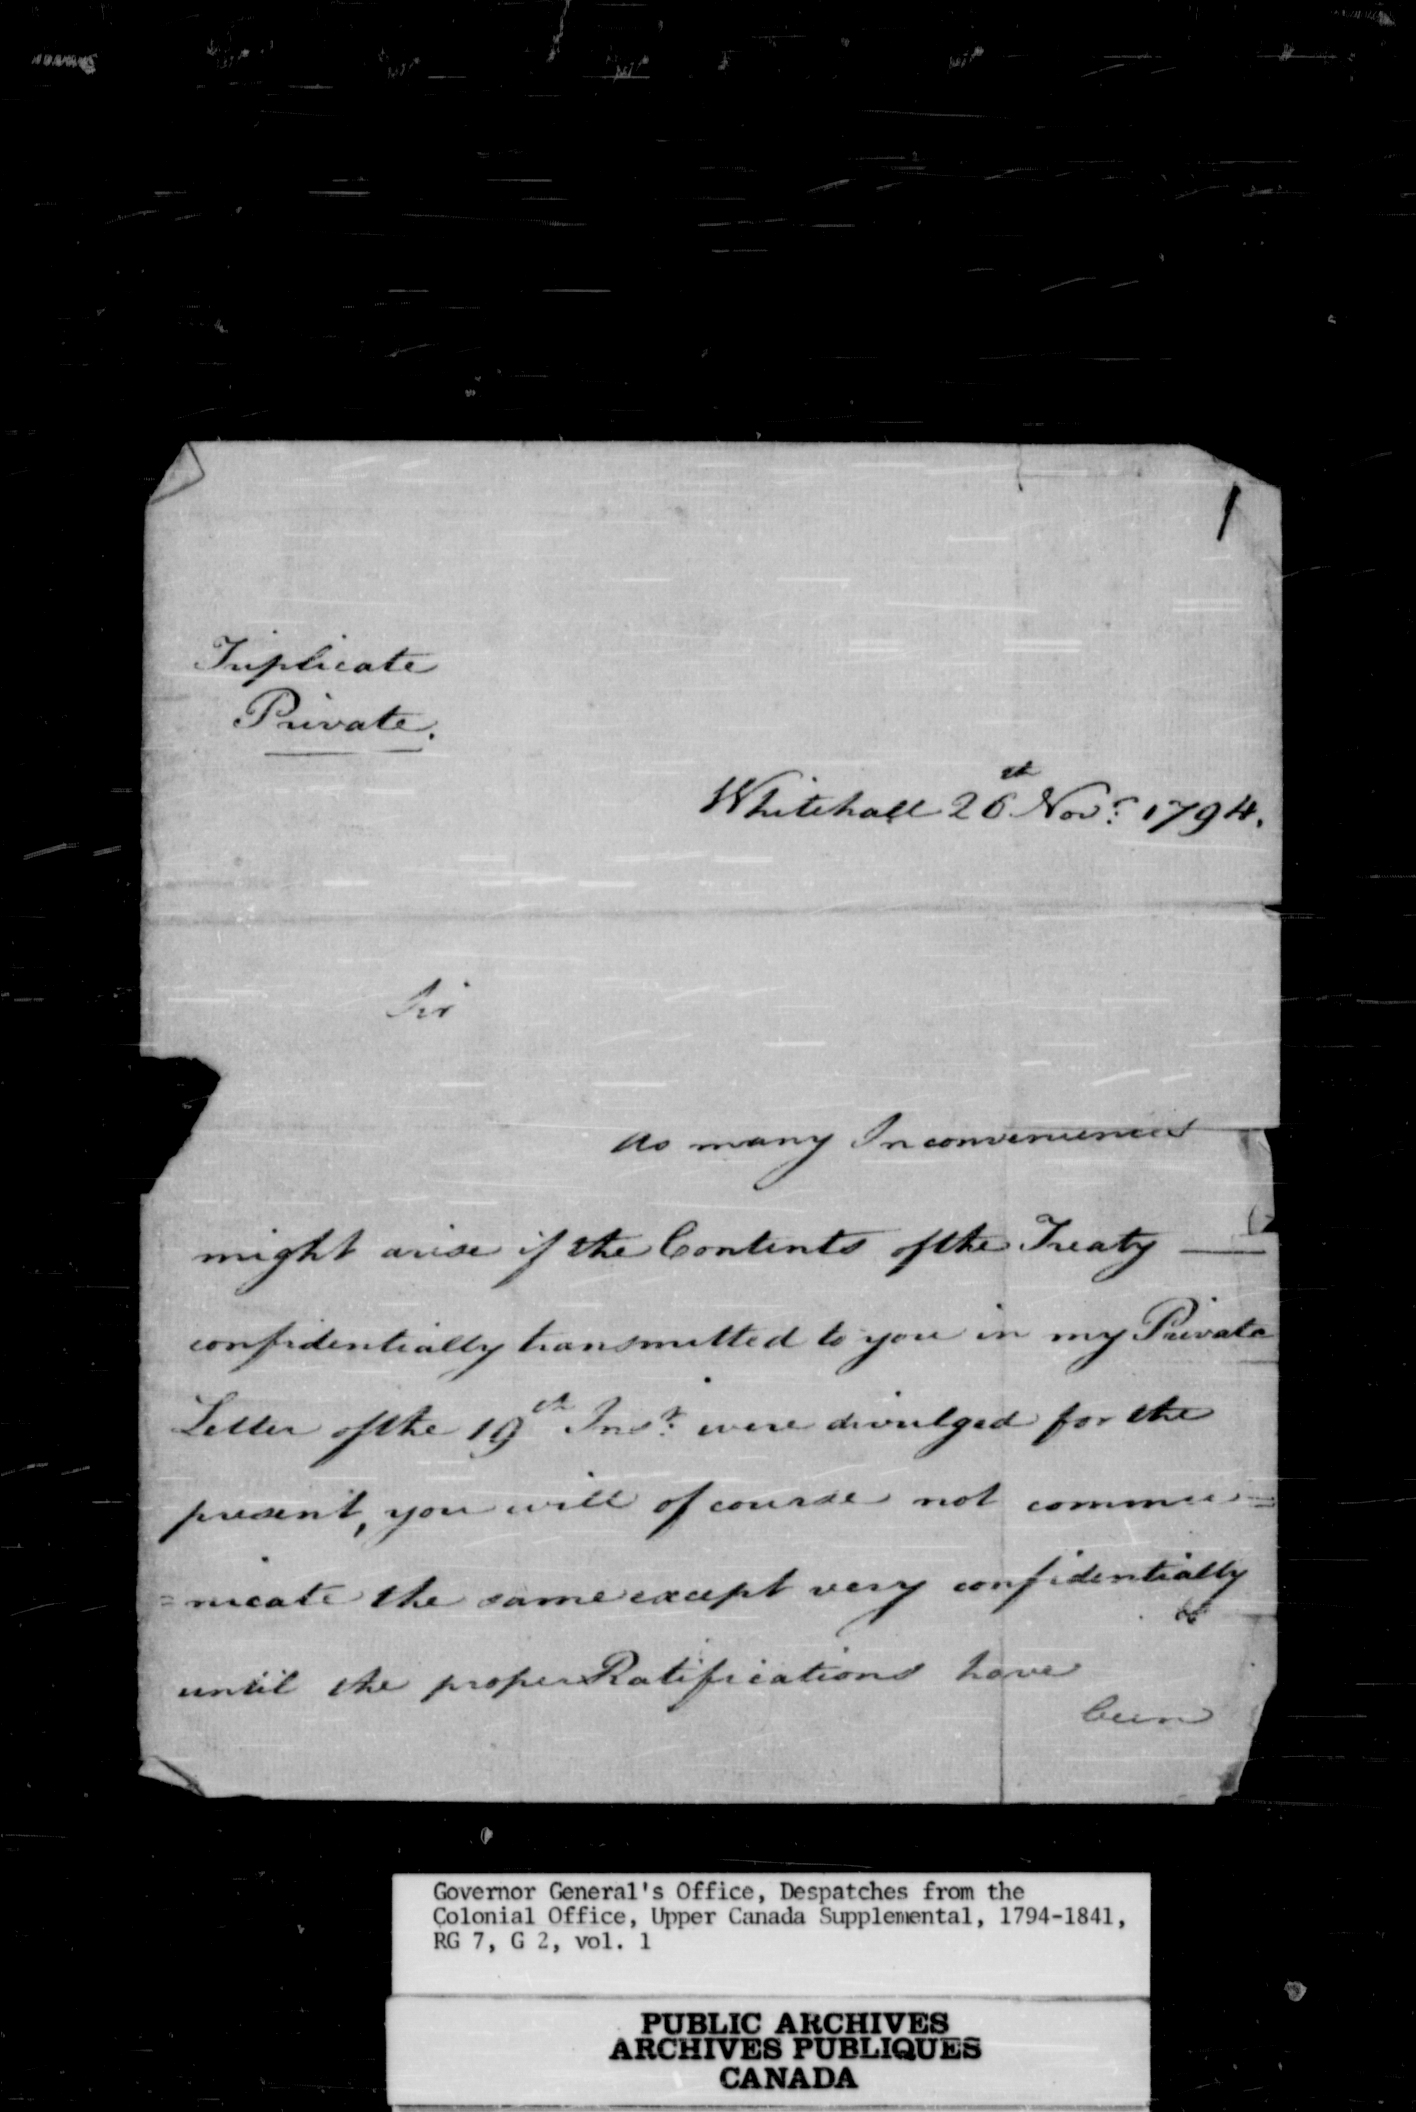 1
Triplicate
Private.
Whitehall 26th Novr. 1794.
Sir
As many Inconveniences
might arise if the Contents of the Treaty
confidentially transmitted to you in my Private
Letter of the 19th Inst. were divulged for the
present, you will of course not commu=
=nicate the same except very confidentially
until the proper Ratifications have
been
Governor General's Office, Despatches from the
Colonial Office, Upper Canada Supplemental, 1794-1841,
RG 7, G 2, vol. 1
PUBLIC ARCHIVES
ARCHIVES PUBLIQUES
CANADA